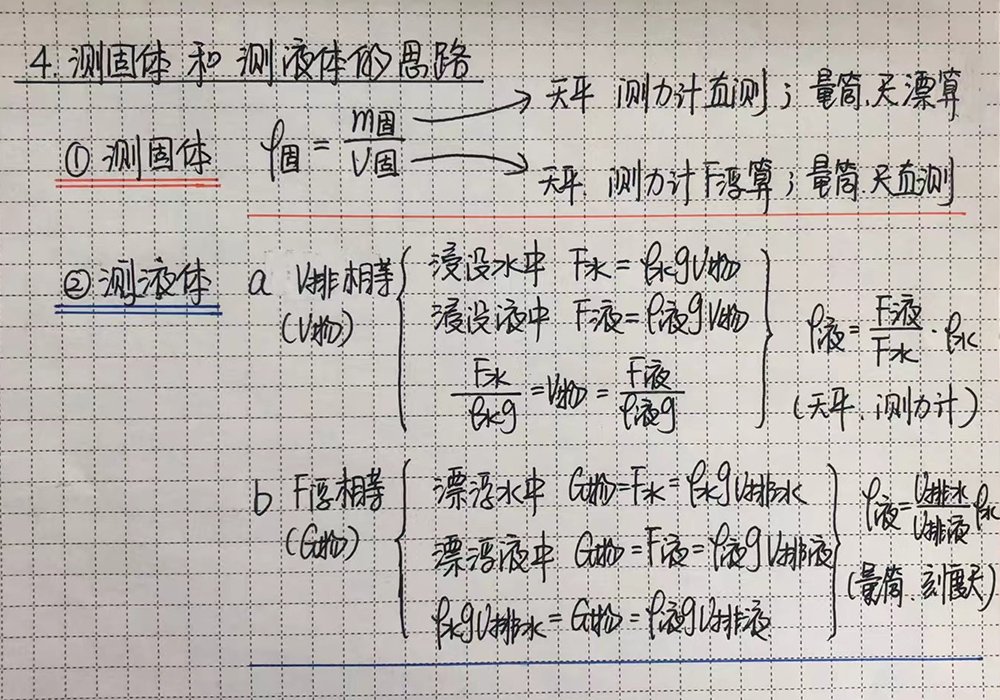 4. 测固体和测液体的思路
① 测固体 ρ固 = m固/V固
天平 测力计直测；量筒、尺漂算
天平、测力计F浮算；量筒、尺直测
② 测液体 a V排相等 (V物)
浸没水中 F水 = ρ水gV物
浸没液中 F液 = ρ液gV物
F水/ρ水g = V物 = F液/ρ液g
ρ液 = F液/F水 · ρ水
(天平、测力计)
b F浮相等 (G物)
漂浮水中 G物 = F水 = ρ水gV排水
漂浮液中 G物 = F液 = ρ液gV排液
ρ水gV排水 = G物 = ρ液gV排液
ρ液 = V排水/V排液 ρ水
(量筒、刻度尺)